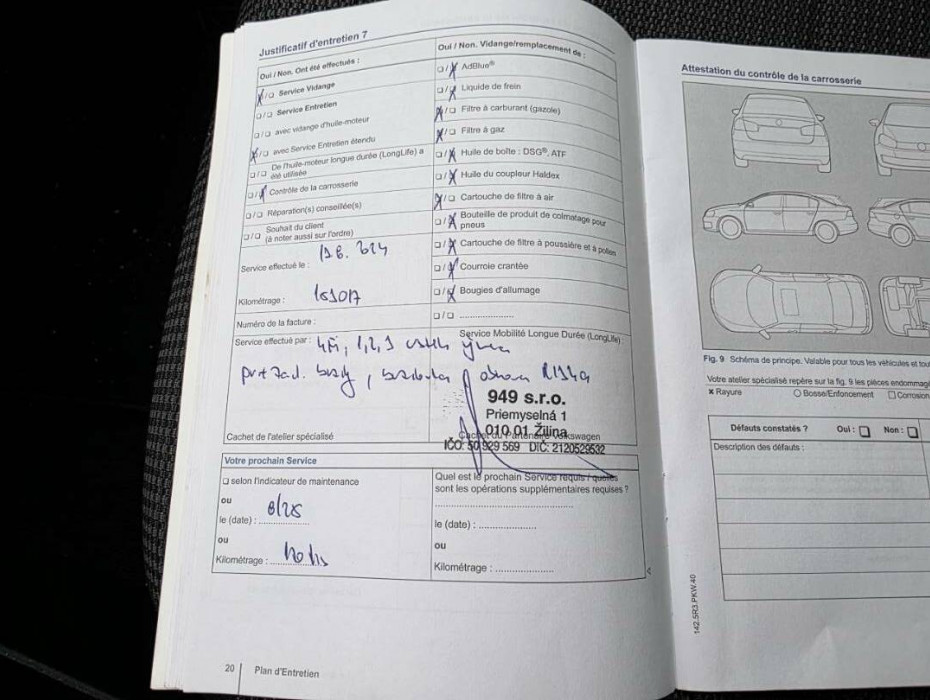 Justificatif d'entretien 7
Oui / Non. Ont été effectués :
Service Vidange
Service Entretien
avec vidange d'huile-moteur
avec Service Entretien étendu
De l'huile-moteur longue durée (LongLife) a été utilisée
Contrôle de la carrosserie
Réparation(s) conseillée(s)
Souhait du client
(à noter aussi sur l'ordre)
Service effectué le :
Kilométrage :
Numéro de la facture :
Service effectué par :
Cachet de l'atelier spécialisé
Oui / Non. Vidange/remplacement de :
AdBlue®
Liquide de frein
Filtre à carburant (gazole)
Filtre à gaz
Huile de boîte : DSG®, ATF
Huile du coupleur Haldex
Cartouche de filtre à air
Bouteille de produit de colmatage pour pneus
Cartouche de filtre à poussière et à pollen
Courroie crantée
Bougies d'allumage
Service Mobilité Longue Durée (LongLife)
949 s.r.o.
Priemyselná 1
010 01 Žilina
IČO: 50 929 569 DIČ: 2120529532
Votre prochain Service
selon l'indicateur de maintenance
ou
le (date) : 8/25
ou
Kilométrage :
Quel est le prochain Service requis / quelles
sont les opérations supplémentaires requises ?
le (date) :
ou
Kilométrage :
20 | Plan d'Entretien
Attestation du contrôle de la carrosserie
Fig. 9 Schéma de principe. Valable pour tous les véhicules et
Votre atelier spécialisé repère sur la fig. 9 les pièces
Rayure Bosse/Enfoncement Corrosion
Défauts constatés ? Oui : Non :
Description des défauts :
142.5R3.PKW.40